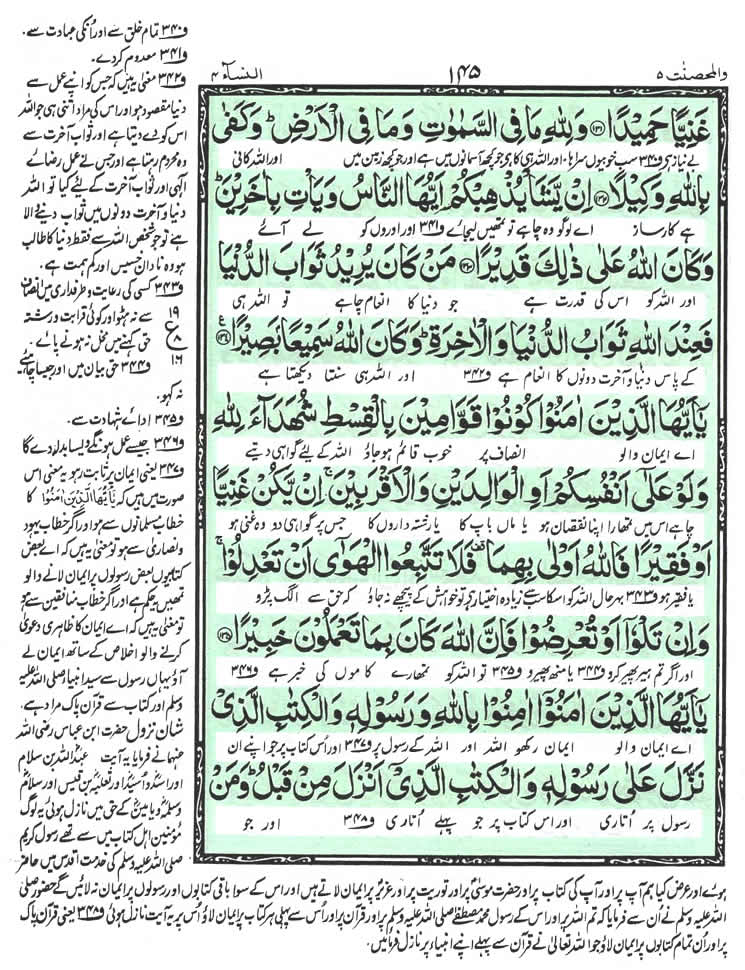 والمحصنت ۵
۱۴۵
النسآء ۴
غَنِيًّا حَمِيْدًا ﴿۱۳۱﴾ وَلِلّٰهِ مَا فِى السَّمٰوٰتِ وَمَا فِى الْاَرْضِ ؕ وَكَفٰى
بے نیاز ہی و۳۴۰ سب خوبیوں سراہا، اور اللہ ہی کا ہی جو کچھ آسمانوں میں ہے اور جو کچھ زمین میں اور اللہ کافی
بِاللّٰهِ وَكِيْلًا ﴿۱۳۲﴾ اِنْ يَّشَاْ يُذْهِبْكُمْ اَيُّهَا النَّاسُ وَيَاْتِ بِاٰخَرِيْنَ ؕ
ہے کارساز اے لوگو وہ چاہے تو تمھیں لیجائے و۳۴۱ اور اوروں کو لے آئے
وَكَانَ اللّٰهُ عَلٰى ذٰلِكَ قَدِيْرًا ﴿۱۳۳﴾ مَنْ كَانَ يُرِيْدُ ثَوَابَ الدُّنْيَا
اور اللہ کو اس کی قدرت ہے جو دنیا کا انعام چاہے تو اللہ ہی
فَعِنْدَ اللّٰهِ ثَوَابُ الدُّنْيَا وَالْاٰخِرَةِ ؕ وَكَانَ اللّٰهُ سَمِيْعًا بَصِيْرًا ﴿۱۳۴﴾
کے پاس دنیا و آخرت دونوں کا انعام ہے و۳۴۲ اور اللہ ہی سنتا دیکھتا ہے
يٰۤاَيُّهَا الَّذِيْنَ اٰمَنُوْا كُوْنُوْا قَوّٰمِيْنَ بِالْقِسْطِ شُهَدَآءَ لِلّٰهِ
اے ایمان والو انصاف پر خوب قائم ہو جاؤ اللہ کے لیئے گواہی دیتے
وَلَوْ عَلٰۤى اَنْفُسِكُمْ اَوِ الْوَالِدَيْنِ وَالْاَقْرَبِيْنَ ۚ اِنْ يَّكُنْ غَنِيًّا
چاہے اس میں تمھارا اپنا نقصان ہو یا ماں باپ کا یا رشتہ داروں کا جس پر گواہی دو وہ غنی ہو
اَوْ فَقِيْرًا فَاللّٰهُ اَوْلٰى بِهِمَا ۫ فَلَا تَتَّبِعُوا الْهَوٰۤى اَنْ تَعْدِلُوْا ۚ
یا فقیر ہو و۳۴۳ بہرحال اللہ کو اسکا سب سے زیادہ اختیار ہی تو خواہش کے پیچھے نہ جاؤ کہ حق سے الگ پڑو
وَاِنْ تَلْوٗۤا اَوْ تُعْرِضُوْا فَاِنَّ اللّٰهَ كَانَ بِمَا تَعْمَلُوْنَ خَبِيْرًا ﴿۱۳۵﴾
اور اگر تم ہیر پھیر کرو و۳۴۴ یا منھ پھیرو و۳۴۵ تو اللہ کو تمھارے کاموں کی خبر ہے و۳۴۶
يٰۤاَيُّهَا الَّذِيْنَ اٰمَنُوْۤا اٰمِنُوْا بِاللّٰهِ وَرَسُوْلِهٖ وَالْكِتٰبِ الَّذِىْ
اے ایمان والو ایمان رکھو اللہ اور اللہ کے رسول پر و۳۴۷ اور اُس کتاب پر جو اپنے ان
نَزَّلَ عَلٰى رَسُوْلِهٖ وَالْكِتٰبِ الَّذِىْۤ اَنْزَلَ مِنْ قَبْلُ ؕ وَمَنْ
رسول پر اُتاری اور اس کتاب پر جو پہلے اُتاری و۳۴۸ اور جو
و۳۴۰ تمام خلق سے اور اُنکی عبادت سے۔
و۳۴۱ معدوم کر دے۔
و۳۴۲ معنیٰ یہ ہیں کہ جس کو اپنے عمل سے
دنیا مقصود ہو اور اس کی مراد اتنی ہی ہو اللہ
اس کو دے دیتا ہے اور ثواب آخرت سے
وہ محروم رہتا ہے اور جس نے عمل رضائے
الٰہی اور ثواب آخرت کے لئے کیا تو اللہ
دنیا و آخرت دونوں میں ثواب دینے والا
ہے تو جو شخص اللہ سے فقط دنیا کا طالب
ہو وہ نادان خسیس اور کم ہمت ہے۔
و۳۴۳ کسی کی رعایت و طرفداری میں انصاف
سے نہ ہٹو اور کوئی قرابت و رشتہ
حق کہنے میں مخل نہ ہونے پائے۔
و۳۴۴ حق بیان میں اور جیسا چاہیئے
نہ کہو۔
۱۹
ع
۸
۱۶
و۳۴۵ ادائے شہادت سے۔
و۳۴۶ جیسے عمل ہونگے ویسا بدلہ دے گا
و۳۴۷ یعنی ایمان پر ثابت رہو یہ معنی اس
صورت میں ہیں کہ يٰۤاَيُّهَا الَّذِيْنَ اٰمَنُوْا کا
خطاب مسلمانوں سے ہو اور اگر خطاب یہود
و نصاریٰ سے ہو تو معنیٰ یہ ہیں کہ اے بعض
کتابوں بعض رسولوں پر ایمان لانے والو
تمھیں یہ حکم ہے اور اگر خطاب منافقین سے ہو
تو معنیٰ یہ ہیں کہ اے ایمان کا ظاہری دعویٰ
کرنے والو اخلاص کے ساتھ ایمان لے
آؤ یہاں رسول سے سید انبیاء صلی اللہ علیہ
وسلم اور کتاب سے قرآن پاک مراد ہے۔
شان نزول حضرت ابن عباس رضی اللہ
عنہما نے فرمایا یہ آیت عبداللہ بن سلام
اور اسد و اُسید اور ثعلبہ بن قیس اور سلام و
سلمہ و یامین کے حق میں نازل ہوئی یہ لوگ
مؤمنین اہل کتاب میں سے تھے رسول کریم
صلی اللہ علیہ وسلم کی خدمت اقدس میں حاضر
ہوئے اور عرض کیا ہم آپ پر اور آپ کی کتاب پر اور حضرت موسیٰ پر اور توریت پر اور عزیر پر ایمان لاتے ہیں اور اس کے سوا باقی کتابوں اور رسولوں پر ایمان نہ لائیں گے حضور صلی
اللہ علیہ وسلم نے اُن سے فرمایا کہ تم اللہ پر اور اس کے رسول محمد مصطفےٰ صلی اللہ علیہ وسلم پر اور قرآن پر اور اُس سے پہلی ہر کتاب پر ایمان لاؤ اس پر یہ آیت نازل ہوئی و۳۴۸ یعنی قرآن پاک
پر اور اُن تمام کتابوں پر ایمان لاؤ جو اللہ تعالیٰ نے قرآن سے پہلے اپنے انبیاء پر نازل فرمائیں۔